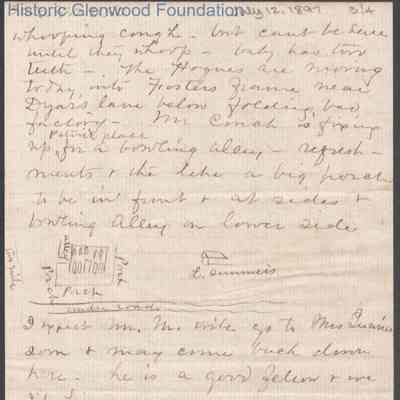 Historic Glenwood Foundation
July 12. 1897 3/4
whooping cough - but cant be sure
until they whoop - baby has two
teeth - The Hogues are moving
today into Fosters frame near
Dyars lane below folding bed
factory - Mr is fixing
up place for a bowling alley - refresh-
ments & the like a big porch
to be in front & at sides &
bowling alley on lower side
alley
Porch
Porch
Porch
L. Summers
I expect Mr. M. will go to Mrs
down & may come back down
here. he is a good felow & we